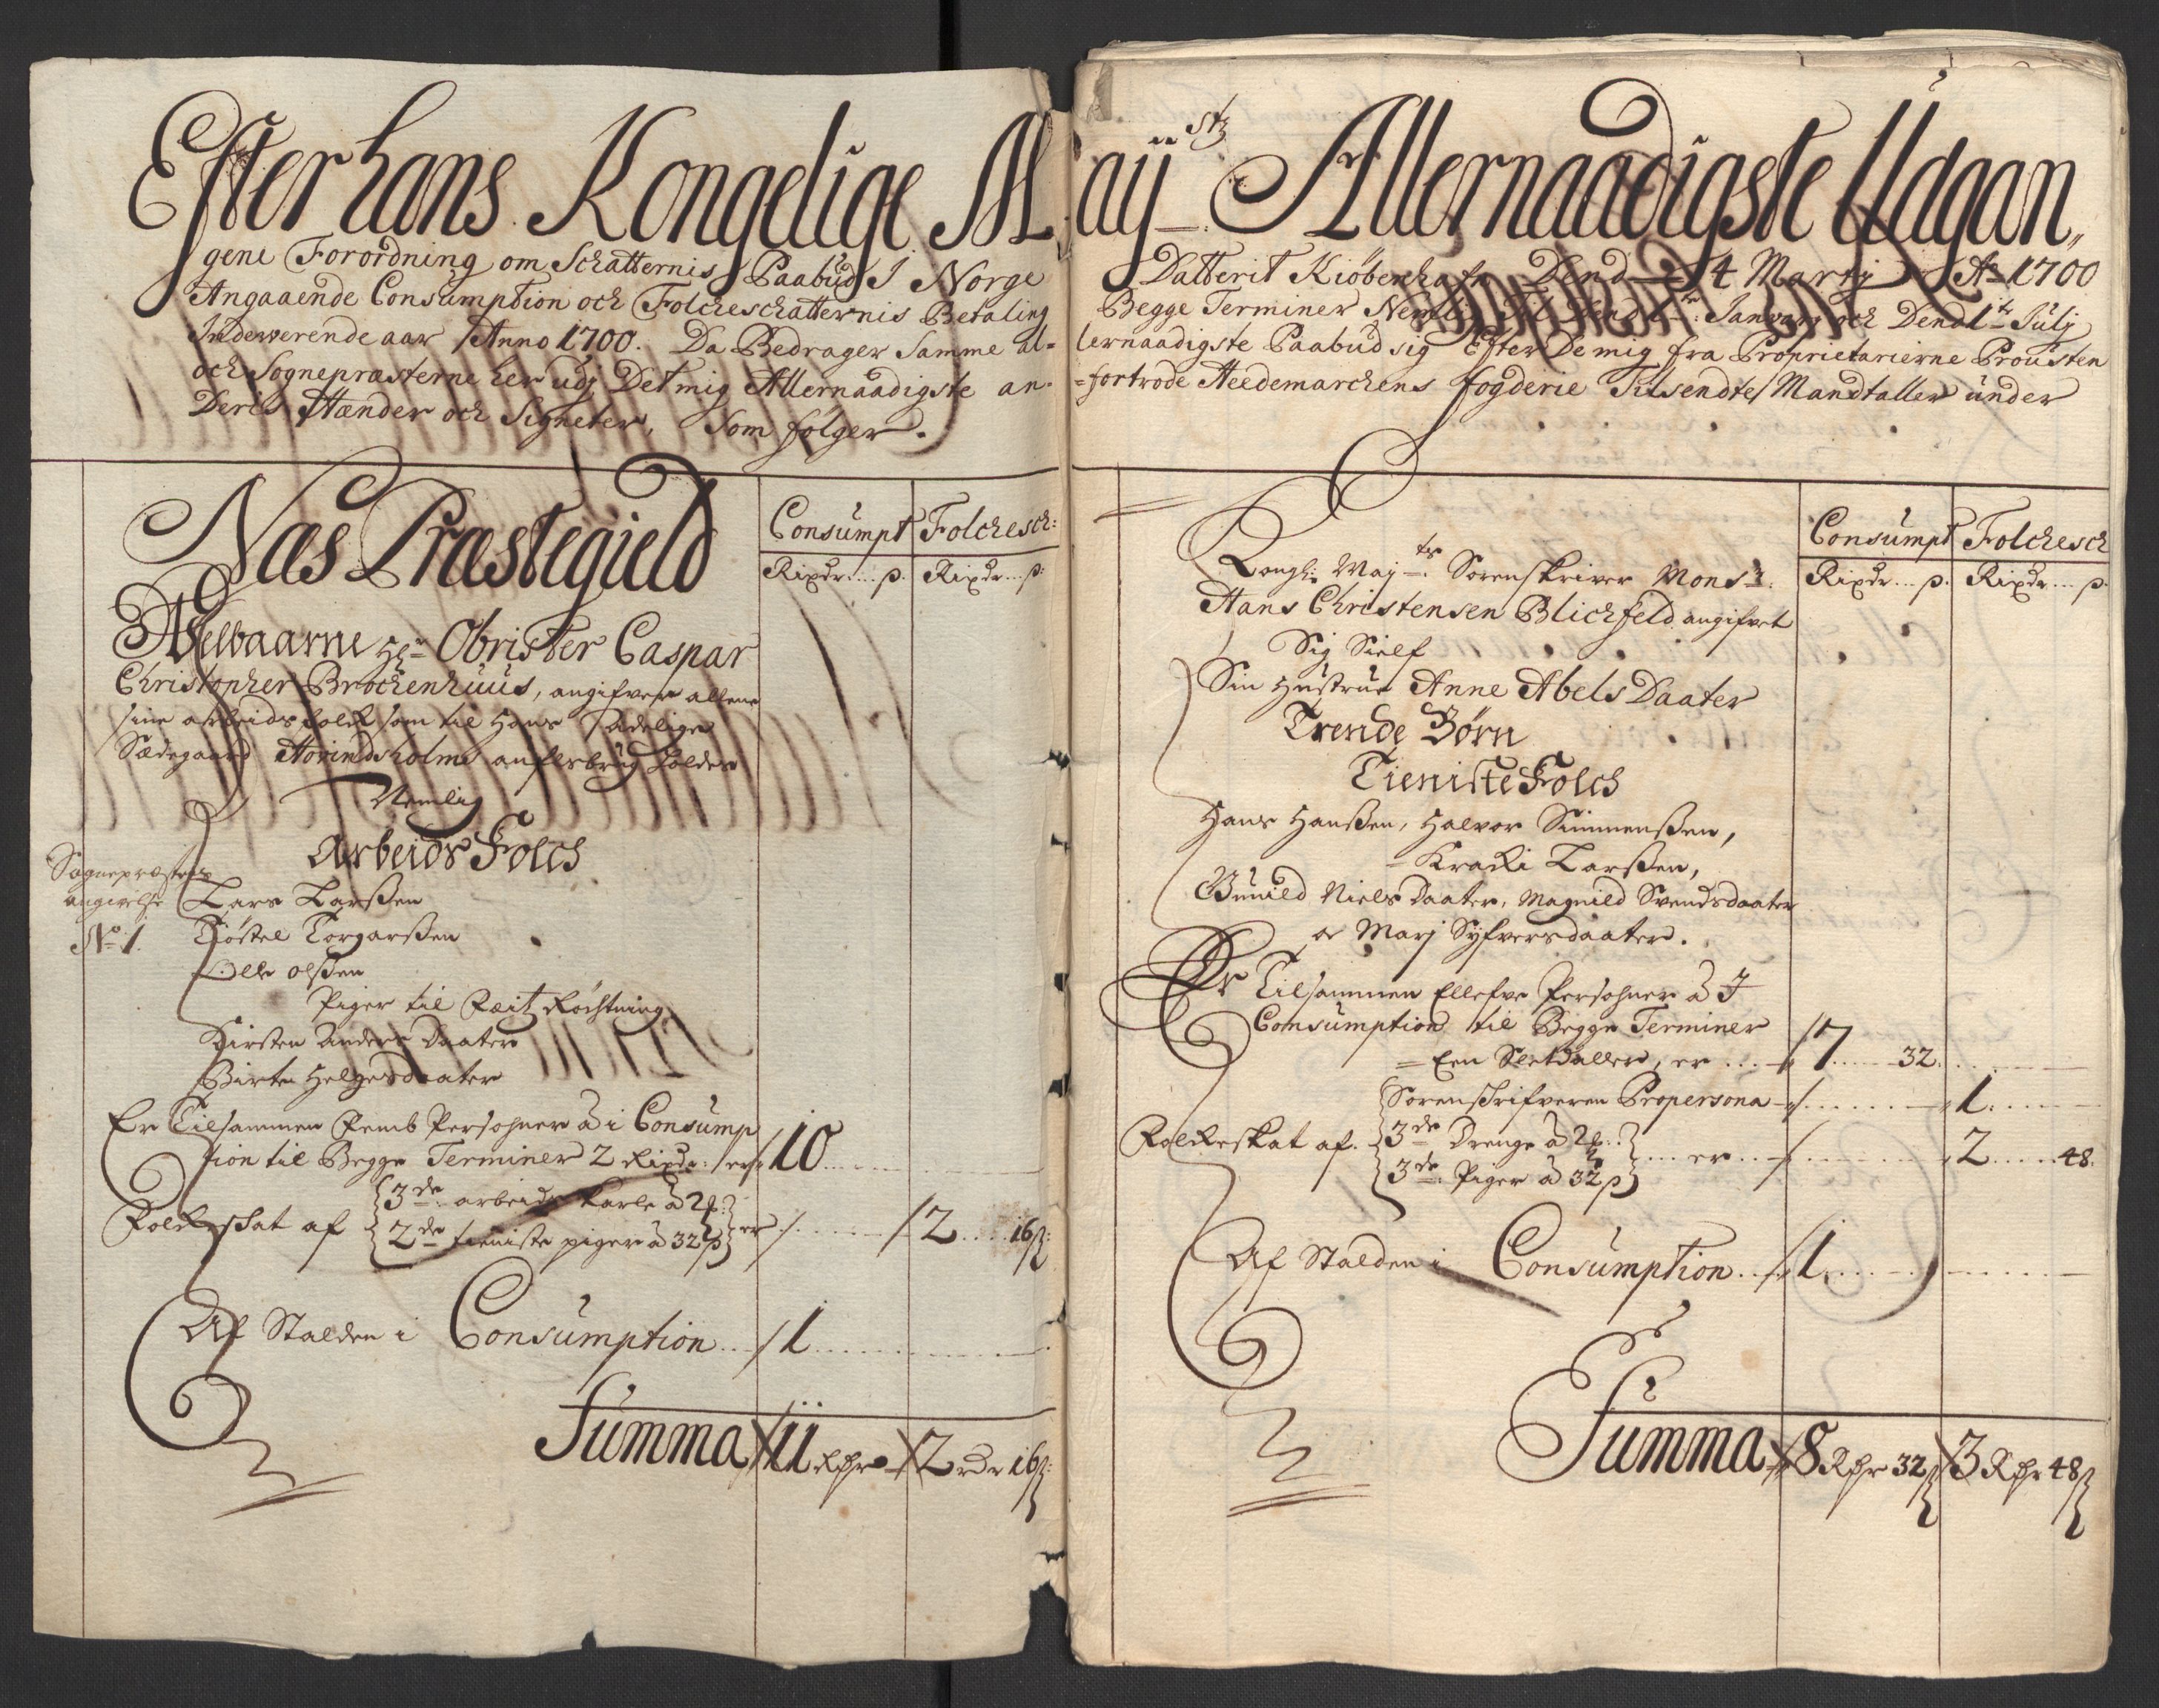 Efter hans Kongelige May.stz Allernaadigste Udgan„
gene Forordning om Schatternis Paabud I Norge Datterit Kiøbenhafn Dend 4 Martj Ao 1700
Angaaende Consumption och Folcheschatternis Betaling Begge Terminer Nemlig Til Dend 1te: Januarj och Dend 1te Julj
Indewerende aar Anno 1700. Da Bedrager Samme al= lernaadigste Paabud sig Efter De mig fra Proprietarierne Prousten
och Sognepræsterne her udj Det mig Allernaadigste an= =fortrode Heedemarchens fogderie Tilsendte Mandtaller under
Deris Hænder och Signeter, Som følger.
Næs Præstegield
Consumpt Folchesch:
Rixdr....ß. Rixdr...ß.
Welbaarne Hr Obrister Caspar
Christopher Brochenhuus, angifver allene
sine arbeids folck som til Hans Adelige
Sædegaard Hovindsholms aufls brug holdes
Nemlig
Arbeids Folch
Sognepræstens
angivelse
No 1.
Lars Larßen
Kiøstel Torgarßen
Olle Olßen
Piger til Fæitz Røchtning
Kirsten Anders Daater
Birte Helgesdaater
Er Tilsammen Femb Persohner à i Consump
tion til Begge Terminer 2 Rixdr. er 10
Folckeskat af 3de arbeids karle à 2 ℔.
2de tieniste piger à 32 ß er 2....16ß
Af Stalden i Consumption 1
Summa 11 Rdr 2 rdr 16ß
Consumpt Folchesch
Rixdr....ß. Rixdr...ß.
Kongl: May.ts Sorenskriver Monsr.
Hans Christensen Blichfeld angifvet
Sig Sielf
Sin Hustrue Anne Abels Daater
Trende Børn
Tieniste Folch
Hans Hanßen, Halvor Simmenßen,
Kracki Larßen,
Gunild Niels Daater, Magnild Svendsdaater
oc Marj Syfversdaater.
Er Tilsammen Ellefve Persohner à I
Consumption til Begge Terminer
= Een Slet Daller, er 7 32.
Sorenskrifveren Propersona 1.
Folckeskat af. 3de Drenge à 2 ℔.
3de: Piger à 32 ß er 2 48.
Af Stalden i Consumption 1
Summa 8 Rdr 32ß 3 Rdr 48ß